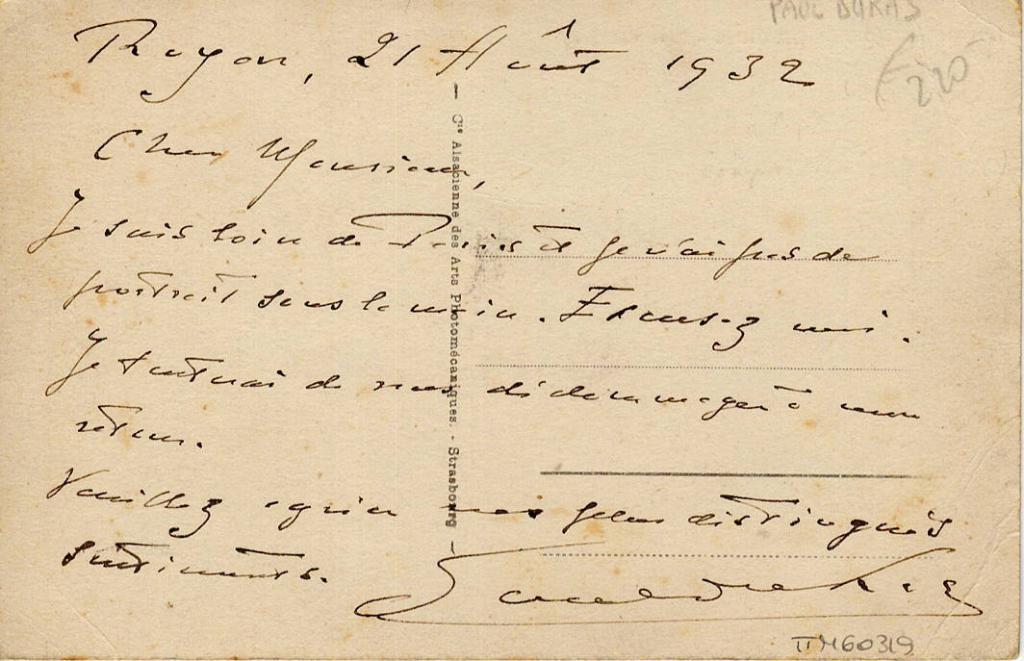 PAUL DUKAS
£220
Royan, 21 Août 1932
Cher Monsieur,
Je suis loin de Paris et je n'ai pas de
portrait sous la main. Excusez moi.
Je tenterai de vous dédommager à mon
retour.
Veuillez agréer mes plus distingués
sentiments.
Paul Dukas
— Cie Alsacienne des Arts Photomécaniques. - Strasbourg —
TTM60319